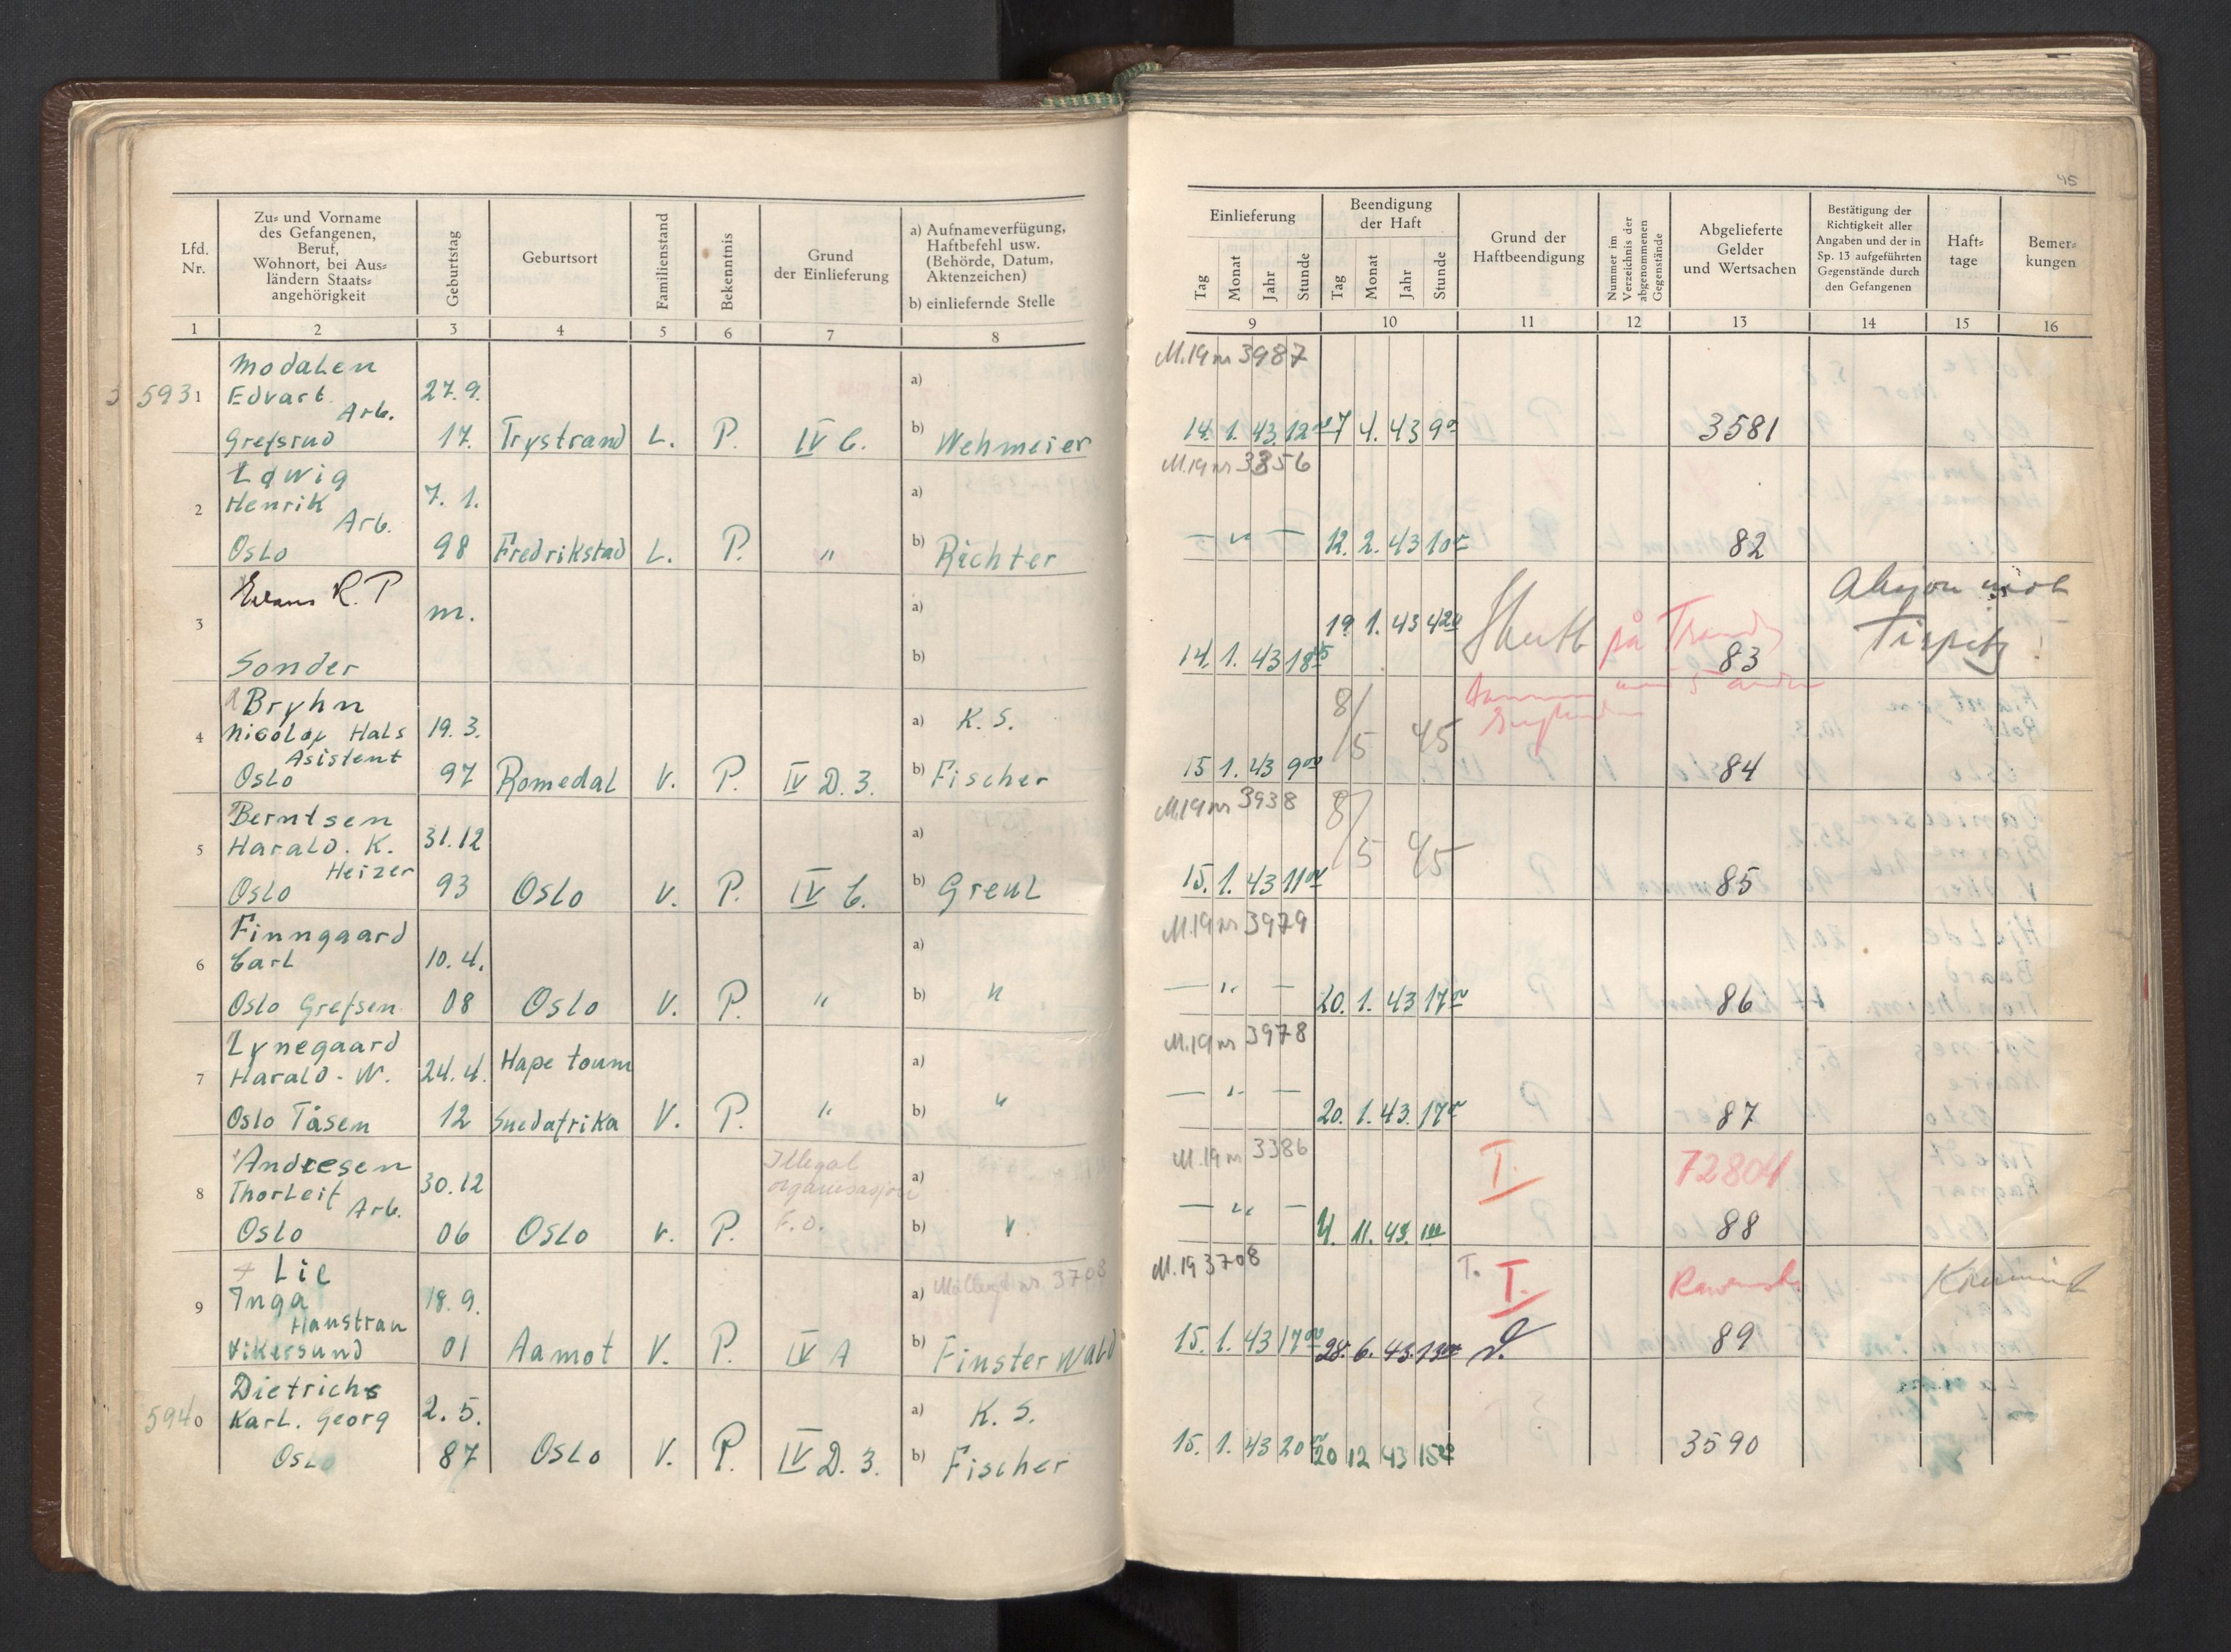 45
Lfd. Nr.
Zu= und Vorname
des Gefangenen,
Beruf,
Wohnort, bei Aus=
ländern Staats=
angehörigkeit
Geburtstag
Geburtsort
Familienstand
Bekenntnis
Grund
der Einlieferung
a) Aufnameverfügung,
Haftbefehl usw.
(Behörde, Datum,
Aktenzeichen)
b) einliefernde Stelle
Einlieferung
Tag Monat Jahr Stunde
Beendigung
der Haft
Tag Monat Jahr Stunde
Grund der
Haftbeendigung
Nummer im
Verzeichnis der
abgenommenen
Gegenstände
Abgelieferte
Gelder
und Wertsachen
Bestätigung der
Richtigkeit aller
Angaben und der in
Sp. 13 aufgeführten
Gegenstände durch
den Gefangenen
Haft=
tage
Bemer=
kungen
1 2 3 4 5 6 7 8 9 10 11 12 13 14 15 16
Modalen M.19 nr 3987
5931 Edvart 27.9. a)
Arb.
Grefsrud 17. Trystrand L. P. IV C. b) Wehmeier 14. 1. 43. 12 7 4. 43 9 3581
Ledwig M.19 nr 3856
2 Henrik 7. 1. a)
Arb.
Oslo 98 Fredrikstad L. P. " b) Richter — " — 12. 2. 43 10 82
Evans R. P Aksjon mot
3 m. a) 19. 1. 43 4 20 Skutt på Trandum Tirpitz!
Sonder b) 14. 1. 43 18 83
Bryhn 8/5 45 sammen med 5 andre
4 Nicolay Hals 19. 3. a) K. S. Englendere
Asistent
Oslo 97 Romedal V. P. IV D. 3. b) Fischer 15 1. 43 9 00 84
Berntsen M.19 nr 3938 8/5 45
5 Harald. K. 31.12 a)
Heizer
Oslo 93 Oslo V. P. IV C. b) Greul 15. 1. 43 11 00 85
Finngaard M.19 nr 3979
6 Carl 10. 4. a)
Oslo Grefsen 08 Oslo V. P. " b) " — " — 20. 1. 43 17 00 86
Lynegaard M.19 nr 3978
7 Harald. W. 24. 4. Hape toum a)
Oslo Tåsen 12 Suedafrika V. P. " b) " — " — 20. 1. 43. 17 00 87
Andresen Illegal M.19 nr 3386 T. 72804
8 Thorleif 30.12 organisasjon a)
Arb.
Oslo 06 Oslo V. P. F.O. b) " — " — 4. 11. 43. 1 00 88
+ Lie M.19 3708 T. T. Kommunist
9 Inga 18. 9. a) Møllergt nr. 3708
Haustrau
Vikersund 01 Aamot V. P. IV A b) Finsterwald 15. 1. 43 17 00 28. 6. 43. 13 00 89
Dietrichs
5940 Karl. Georg 2. 5. a) K. S.
Oslo 87 Oslo V. P. IV D. 3. b) Fischer 15. 1. 43 20 20 12 43 15 3590